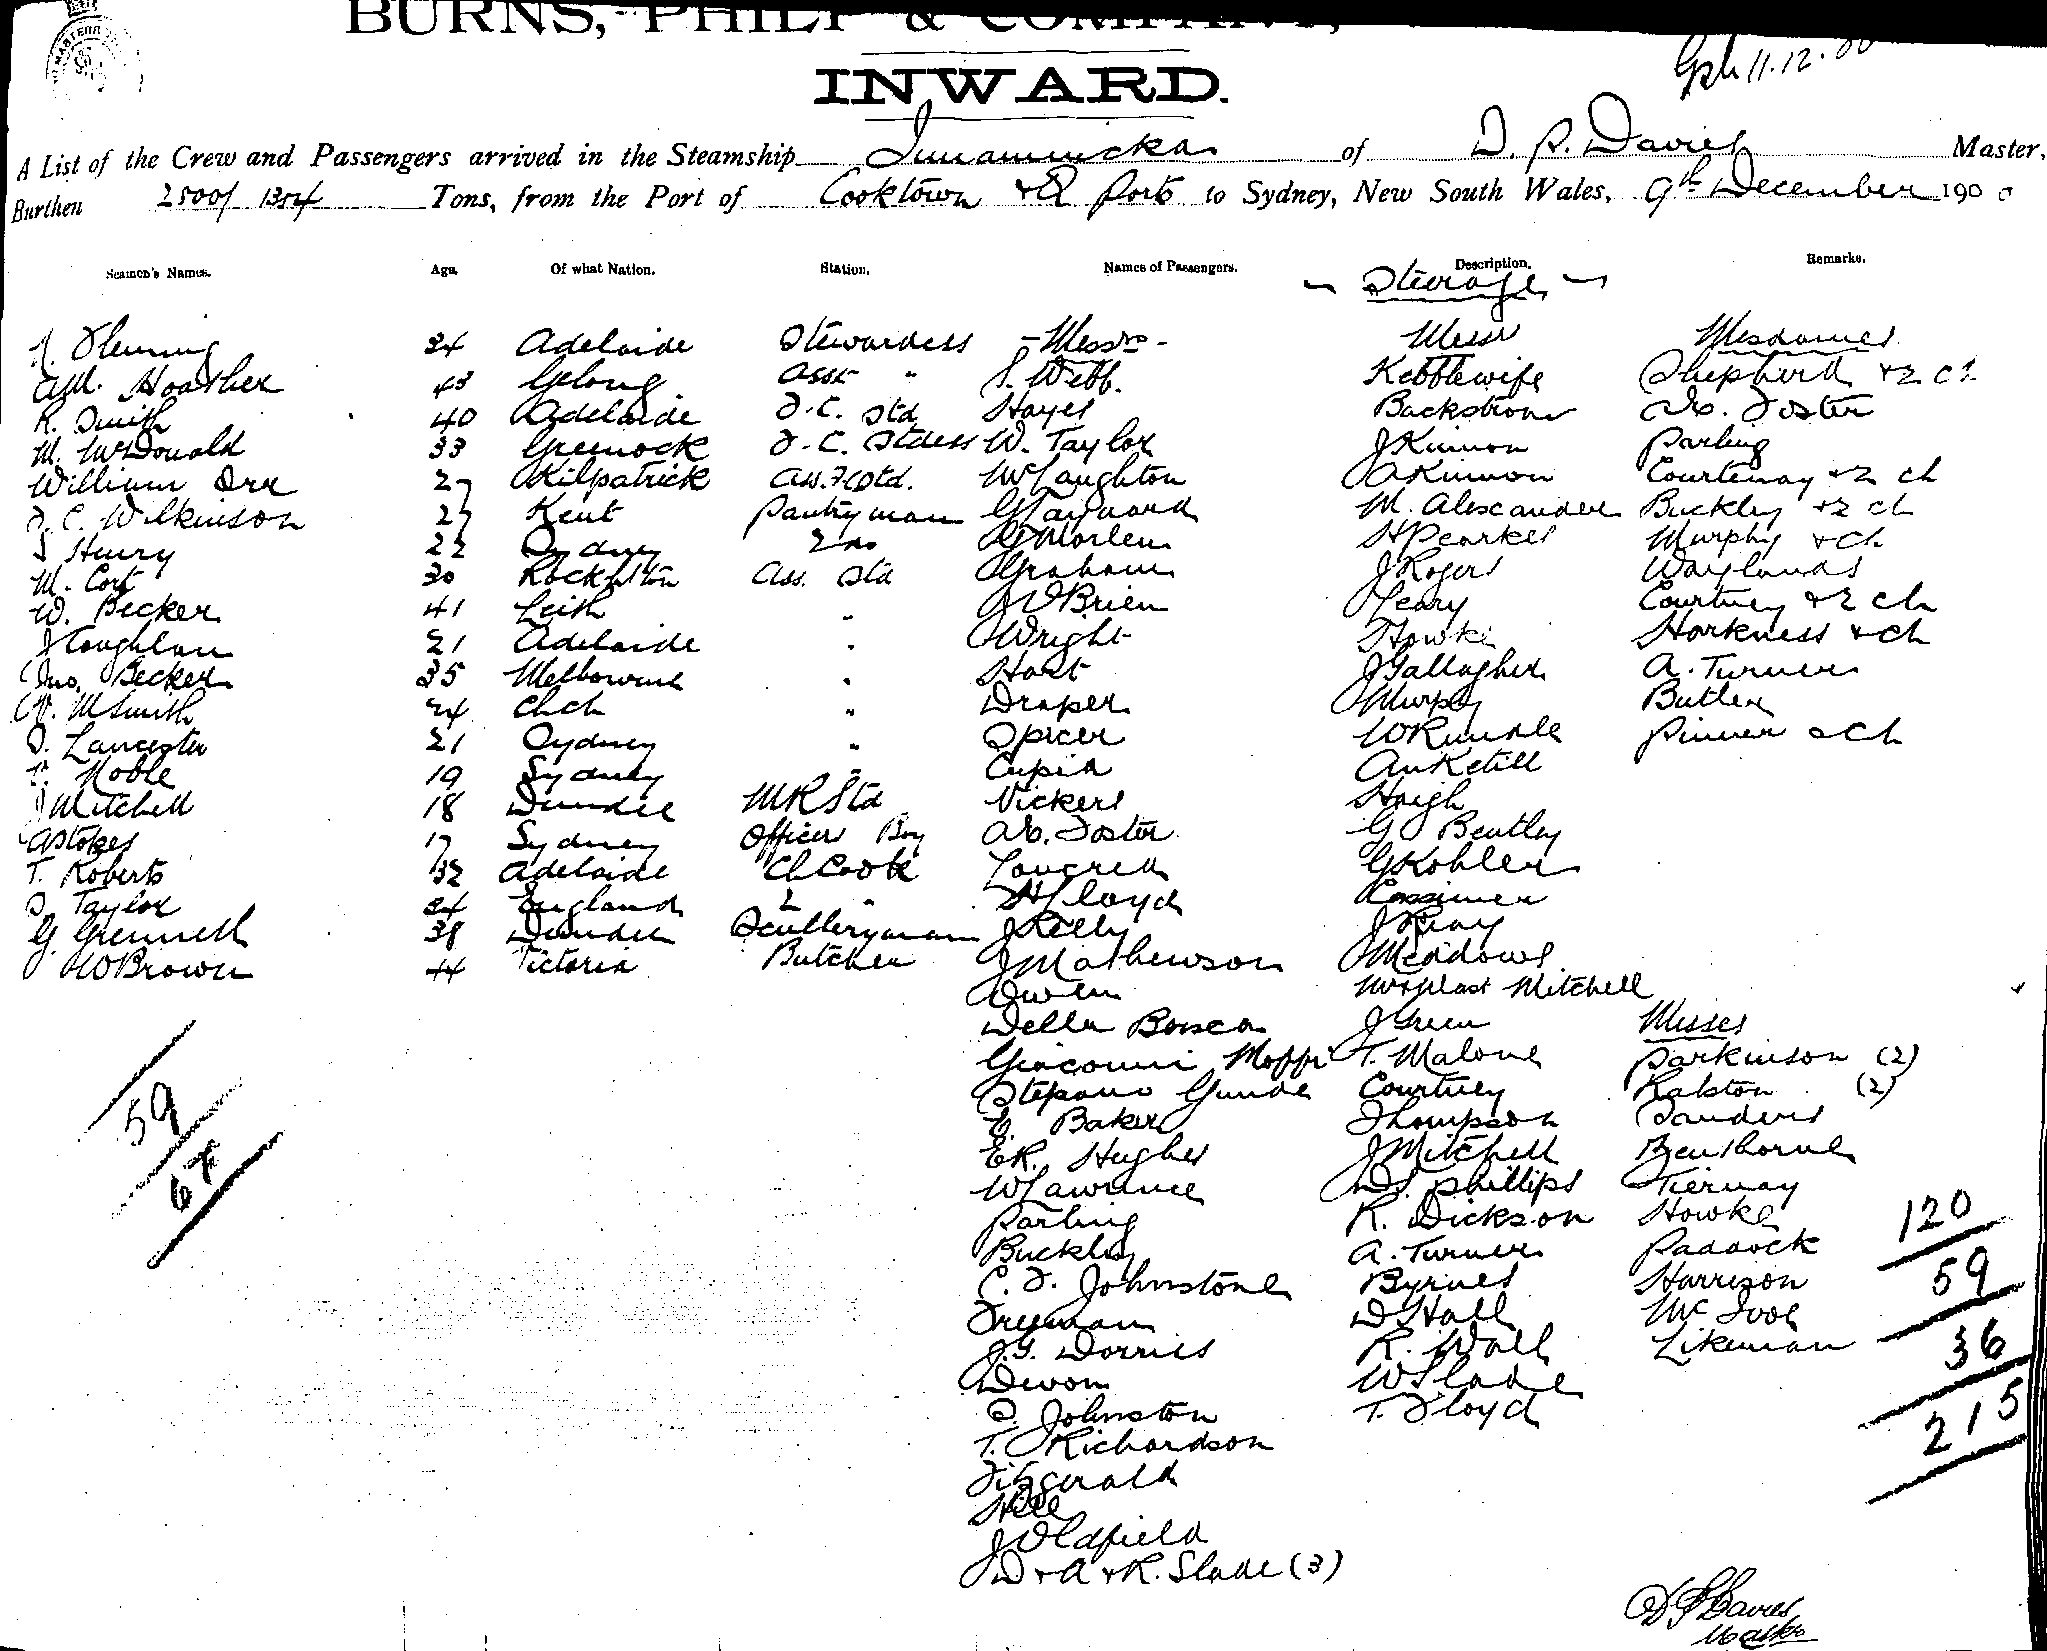 BURNS, PHILP & COMPANY,
INWARD.
11.12.00
A List of the Crew and Passengers arrived in the Steamship Innamincka of D. P. Davies Master,
Burthen 2500/1354 Tons, from the Port of Cooktown & Q Ports to Sydney, New South Wales, 9th December 1900
Seamen's Names. Age. Of what Nation. Station. Names of Passengers. Description. Remarks.
Steerage
Fleming 34 Adelaide Stewardess Messrs Messrs Mesdames
A.M. Hoarher 43 Gelong Asst " S. Webb. Kebblewife Shepherd & 2 ch
R. Smith 40 Adelaide F.C. Std Hayes Backstrom A.E. Foster
M. McDonald 33 Greenock F.C. Stdess W. Taylor J Kinnon Parling
William Orr 27 Kilpatrick Ass. F C Std. McLaughton A Kinnon Courtenay & 2 ch
F. C. Wilkinson 27 Kent Pantryman G Maynard M. Alexander Buckley & 2 ch
S Henry 22 Sydney 2nd G Morlem H Pearkes Murphy & Ch
M. Cort 30 Rockhpton Ass. Std Graham J Rogers Waylands
W. Becker 41 Leith " O'Brien Leary Courtney & 2 ch
J Coughlan 21 Adelaide " Wright Howke Harkness & Ch
Jno. Becker 35 Melbourne " Hart J Gallagher A. Turner
W. M Smith 24 Chch " Draper Murphy Butler
S. Lancaster 21 Sydney " Spicer W Rundle Pinner & Ch
T. Noble 19 Sydney " Cupid Anketell
J Mitchell 18 Dundee M R Std Vickers Haigh
A Stokes 17 Sydney Officers Boy A.E. Foster G Bentley
T. Roberts 32 Adelaide Ch Cook Longred G Kohler
S. Taylor 24 England 2 " H Lloyd Cassimer
G. Grenneth 38 Dundee Sculleryman J Kelly J Gray
J. W Brown 44 Victoria Butcher J Mathewson Meadows
Owen Mr & Mast Mitchell
Della Bosca J Green Misses
Giacomi Moffi T. Malone Parkinson (2)
Stepano Gunde Courtney Ralston (2)
E. Baker Thompson Sanders
59 E R. Hughes J Mitchell Benthorne
67 W Lawrence D S. Phillips Tiernay
Parling R. Dickson Howke 120
Buckley A. Turner Paddock
C. F. Johnstone Byrnes Harrison 59
Freeman D Hall McIvor
J. G. Dorries R. Wall Likeman 36
Devon W Slade
S. Johnston T. Floyd 215
T. Richardson
Fitzgerald
Hill
J Oldfield
D & A & R. Slade (3)
D P Davies
Master